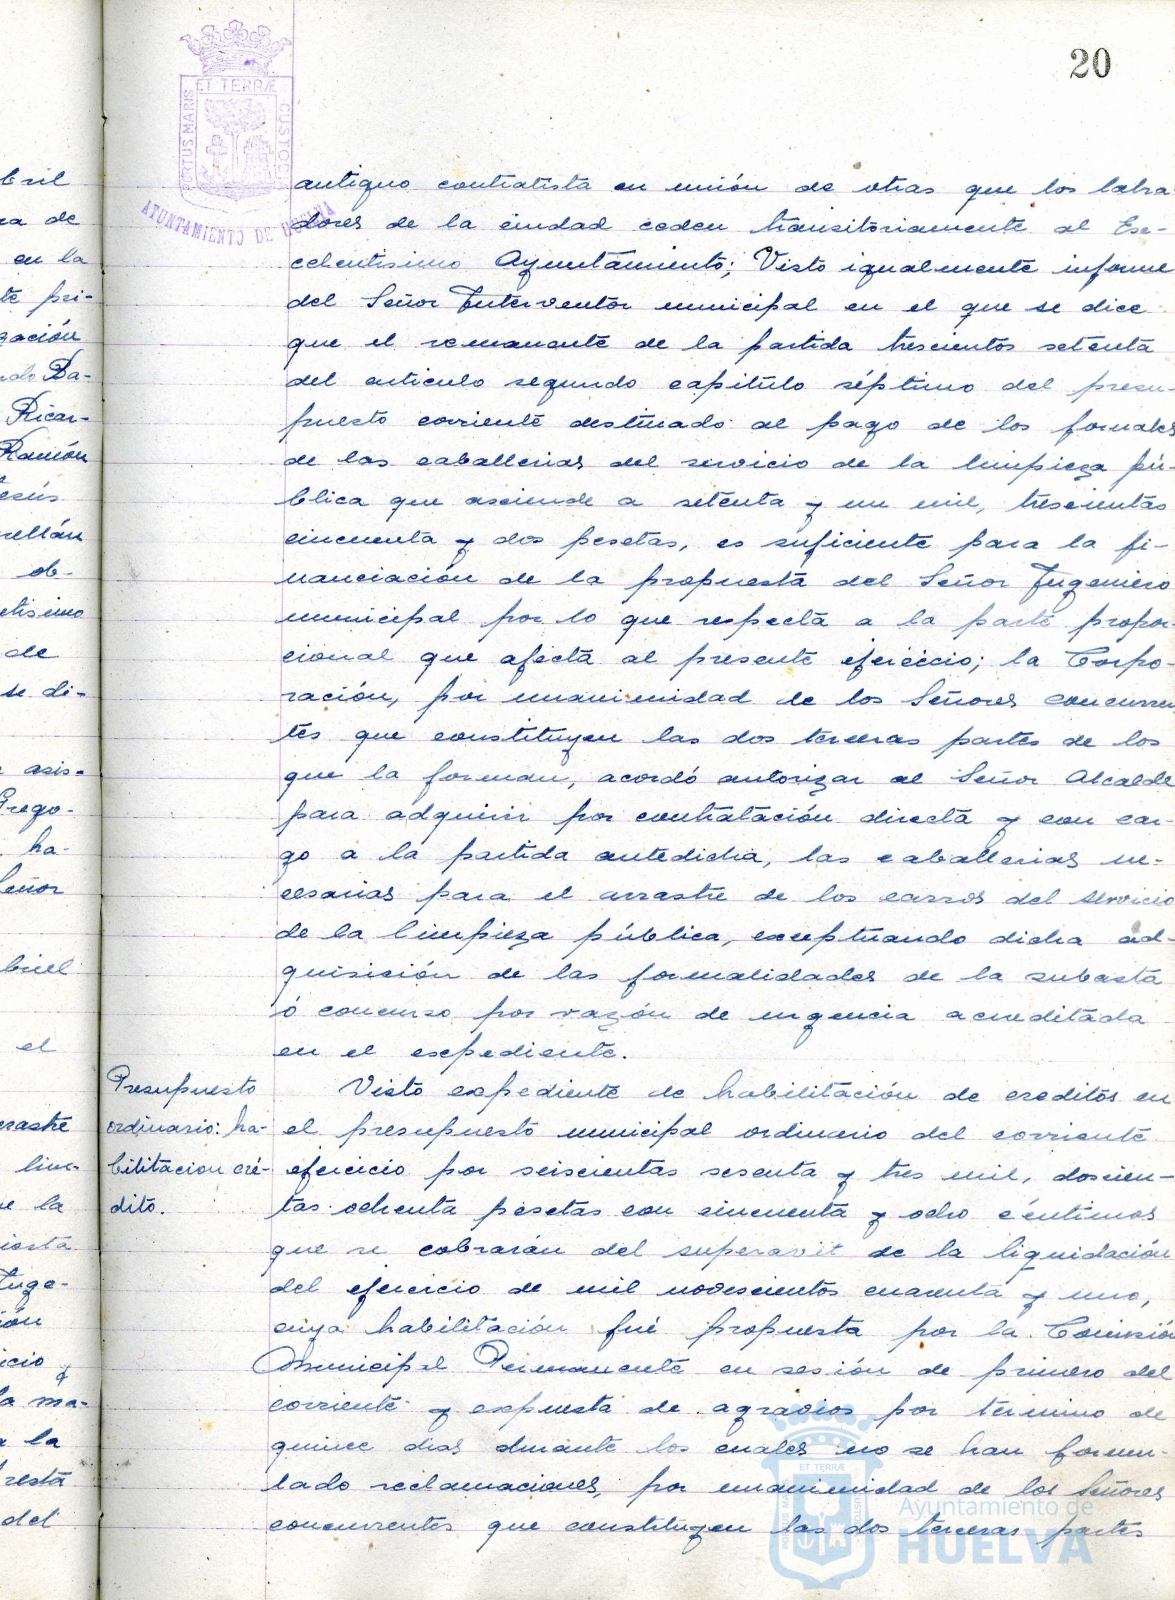 20
PORTUS MARIS ET TERRÆ CUSTODI
AYUNTAMIENTO DE HUELVA
antiguo contratista en unión de otras que los labra
dores de la ciudad ceden transitoriamente al Exc-
celentisimo Ayuntamiento; Visto igualmente informe
del Señor Interventor municipal en el que se dice
que el remanente de la partida trescientos setenta
del articulo segundo capitulo séptimo del presu-
puesto corriente destinado al pago de los jornales
de las caballerias del servicio de la limpieza pú-
blica que asciende a setenta y un mil, trescientas
cincuenta y dos pesetas, es suficiente para la fi-
nanciación de la propuesta del Señor Ingeniero
municipal por lo que respecta a la parte propor-
cional que afecta al presente ejercicio; la Corpo-
ración, por unanimidad de los Señores concurren
tes que constituyen las dos terceras partes de los
que la forman, acordó autorizar al Señor Alcalde
para adquirir por contratación directa y con car-
go a la partida antedicha, las caballerias ne-
cesarias para el arrastre de los carros del servicio
de la limpieza pública, exceptuando dicha ad-
quisición de las formalidades de la subasta
ó concurso por razón de urgencia acreditada
en el expediente.
Presupuesto
ordinario: ha-
bilitacion cré-
dito.
Visto expediente de habilitación de creditos en
el presupuesto municipal ordinario del corriente
ejercicio por seiscientas sesenta y tres mil, doscien-
tas ochenta pesetas con cincuenta y ocho céntimos
que se cobrarán del superavit de la liquidación
del ejercicio de mil novescientos cuarenta y uno,
cuya habilitación fué propuesta por la Comisión
Municipal Permanente en sesión de primero del
corriente y expuesta de agravios por termino de
quince dias durante los cuales no se han formu-
lado reclamaciones, por unanimidad de los Señores
concurrentes que constituyen las dos terceras partes
bril
ra de
en la
te pri-
zación
ndo Ba-
Ricar-
Ramón
esús
rellán
ob-
etisimo
de
se di-
asis-
Grego-
ha-
eñor
briel
el
rastre
lim-
e la
iesta
Inge-
ión
icio y
la ma-
a la
resta
del
ET TERRÆ
Ayuntamiento de
HUELVA